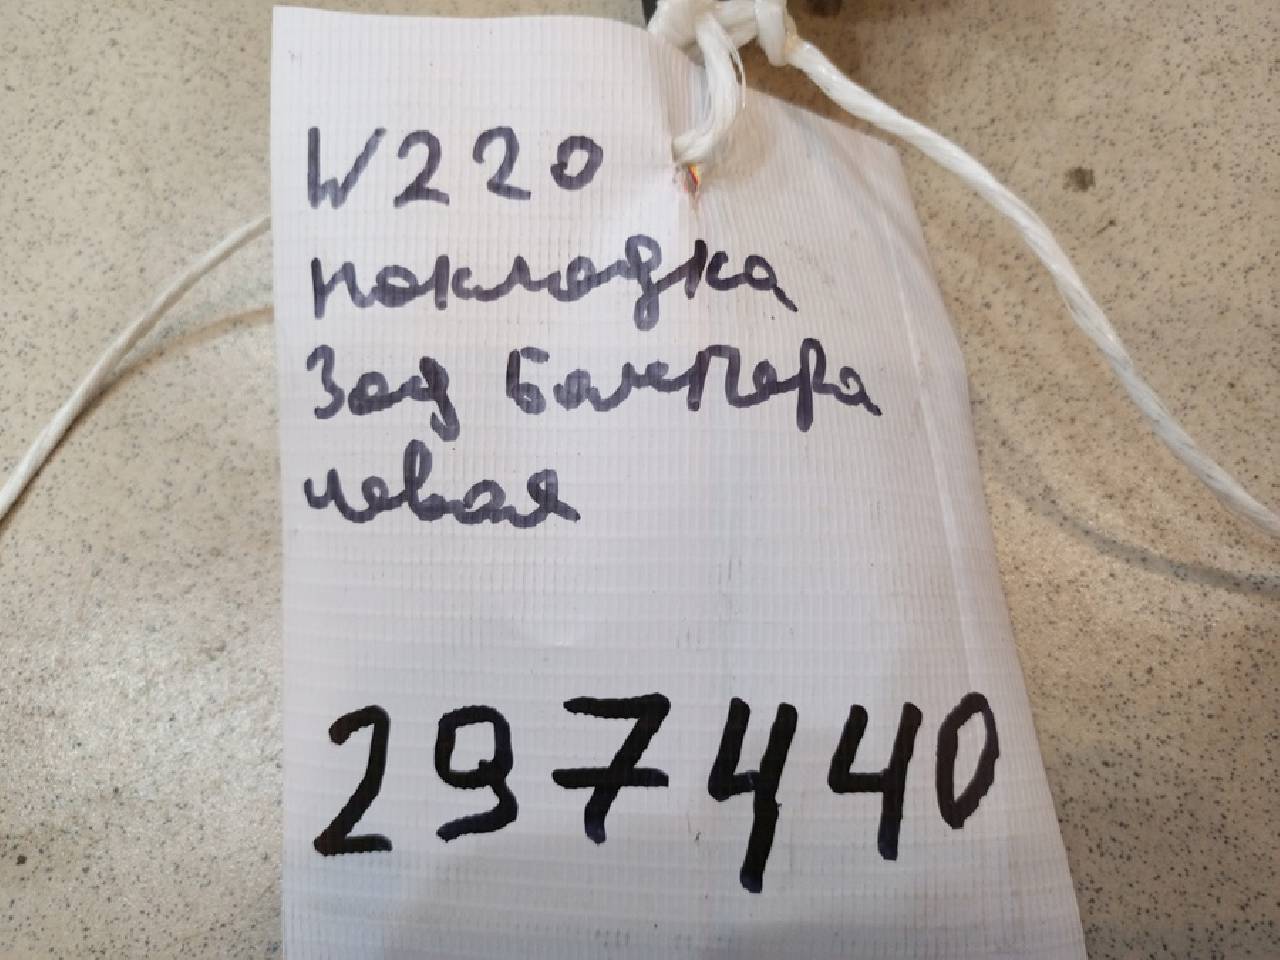 W220
накладка
Зад Бампера
левая
297440